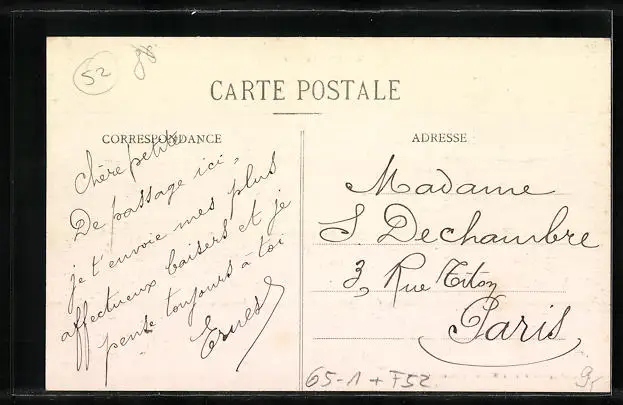 52
CARTE POSTALE
CORRESPONDANCE
Chère petite
De passage ici,
je t'envoie mes plus
affectueux baisers et je
pense toujours à toi
Ernest
ADRESSE
Madame
S. Dechambre
3, Rue Titon
Paris
65-1 + F52